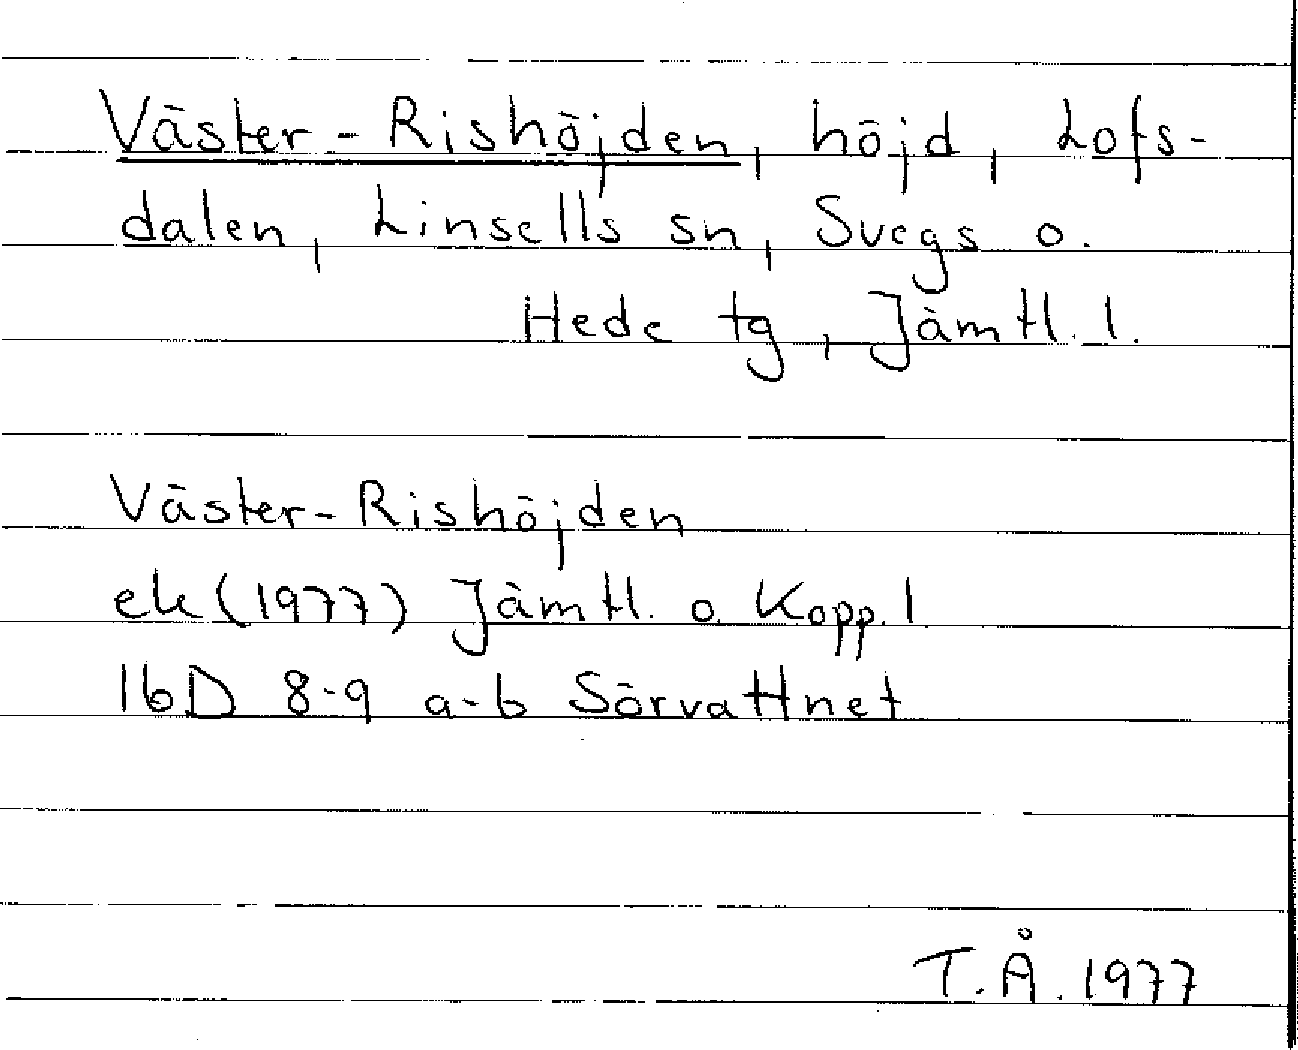 Väster-Rishöjden, höjd, Lofs-
dalen, Linsells sn, Svegs o.
Hede tg, Jämtl. l.
Väster-Rishöjden
ek (1977) Jämtl. o. Kopp. l
16D 8-9 a-b Sörvattnet
T.Å. 1977